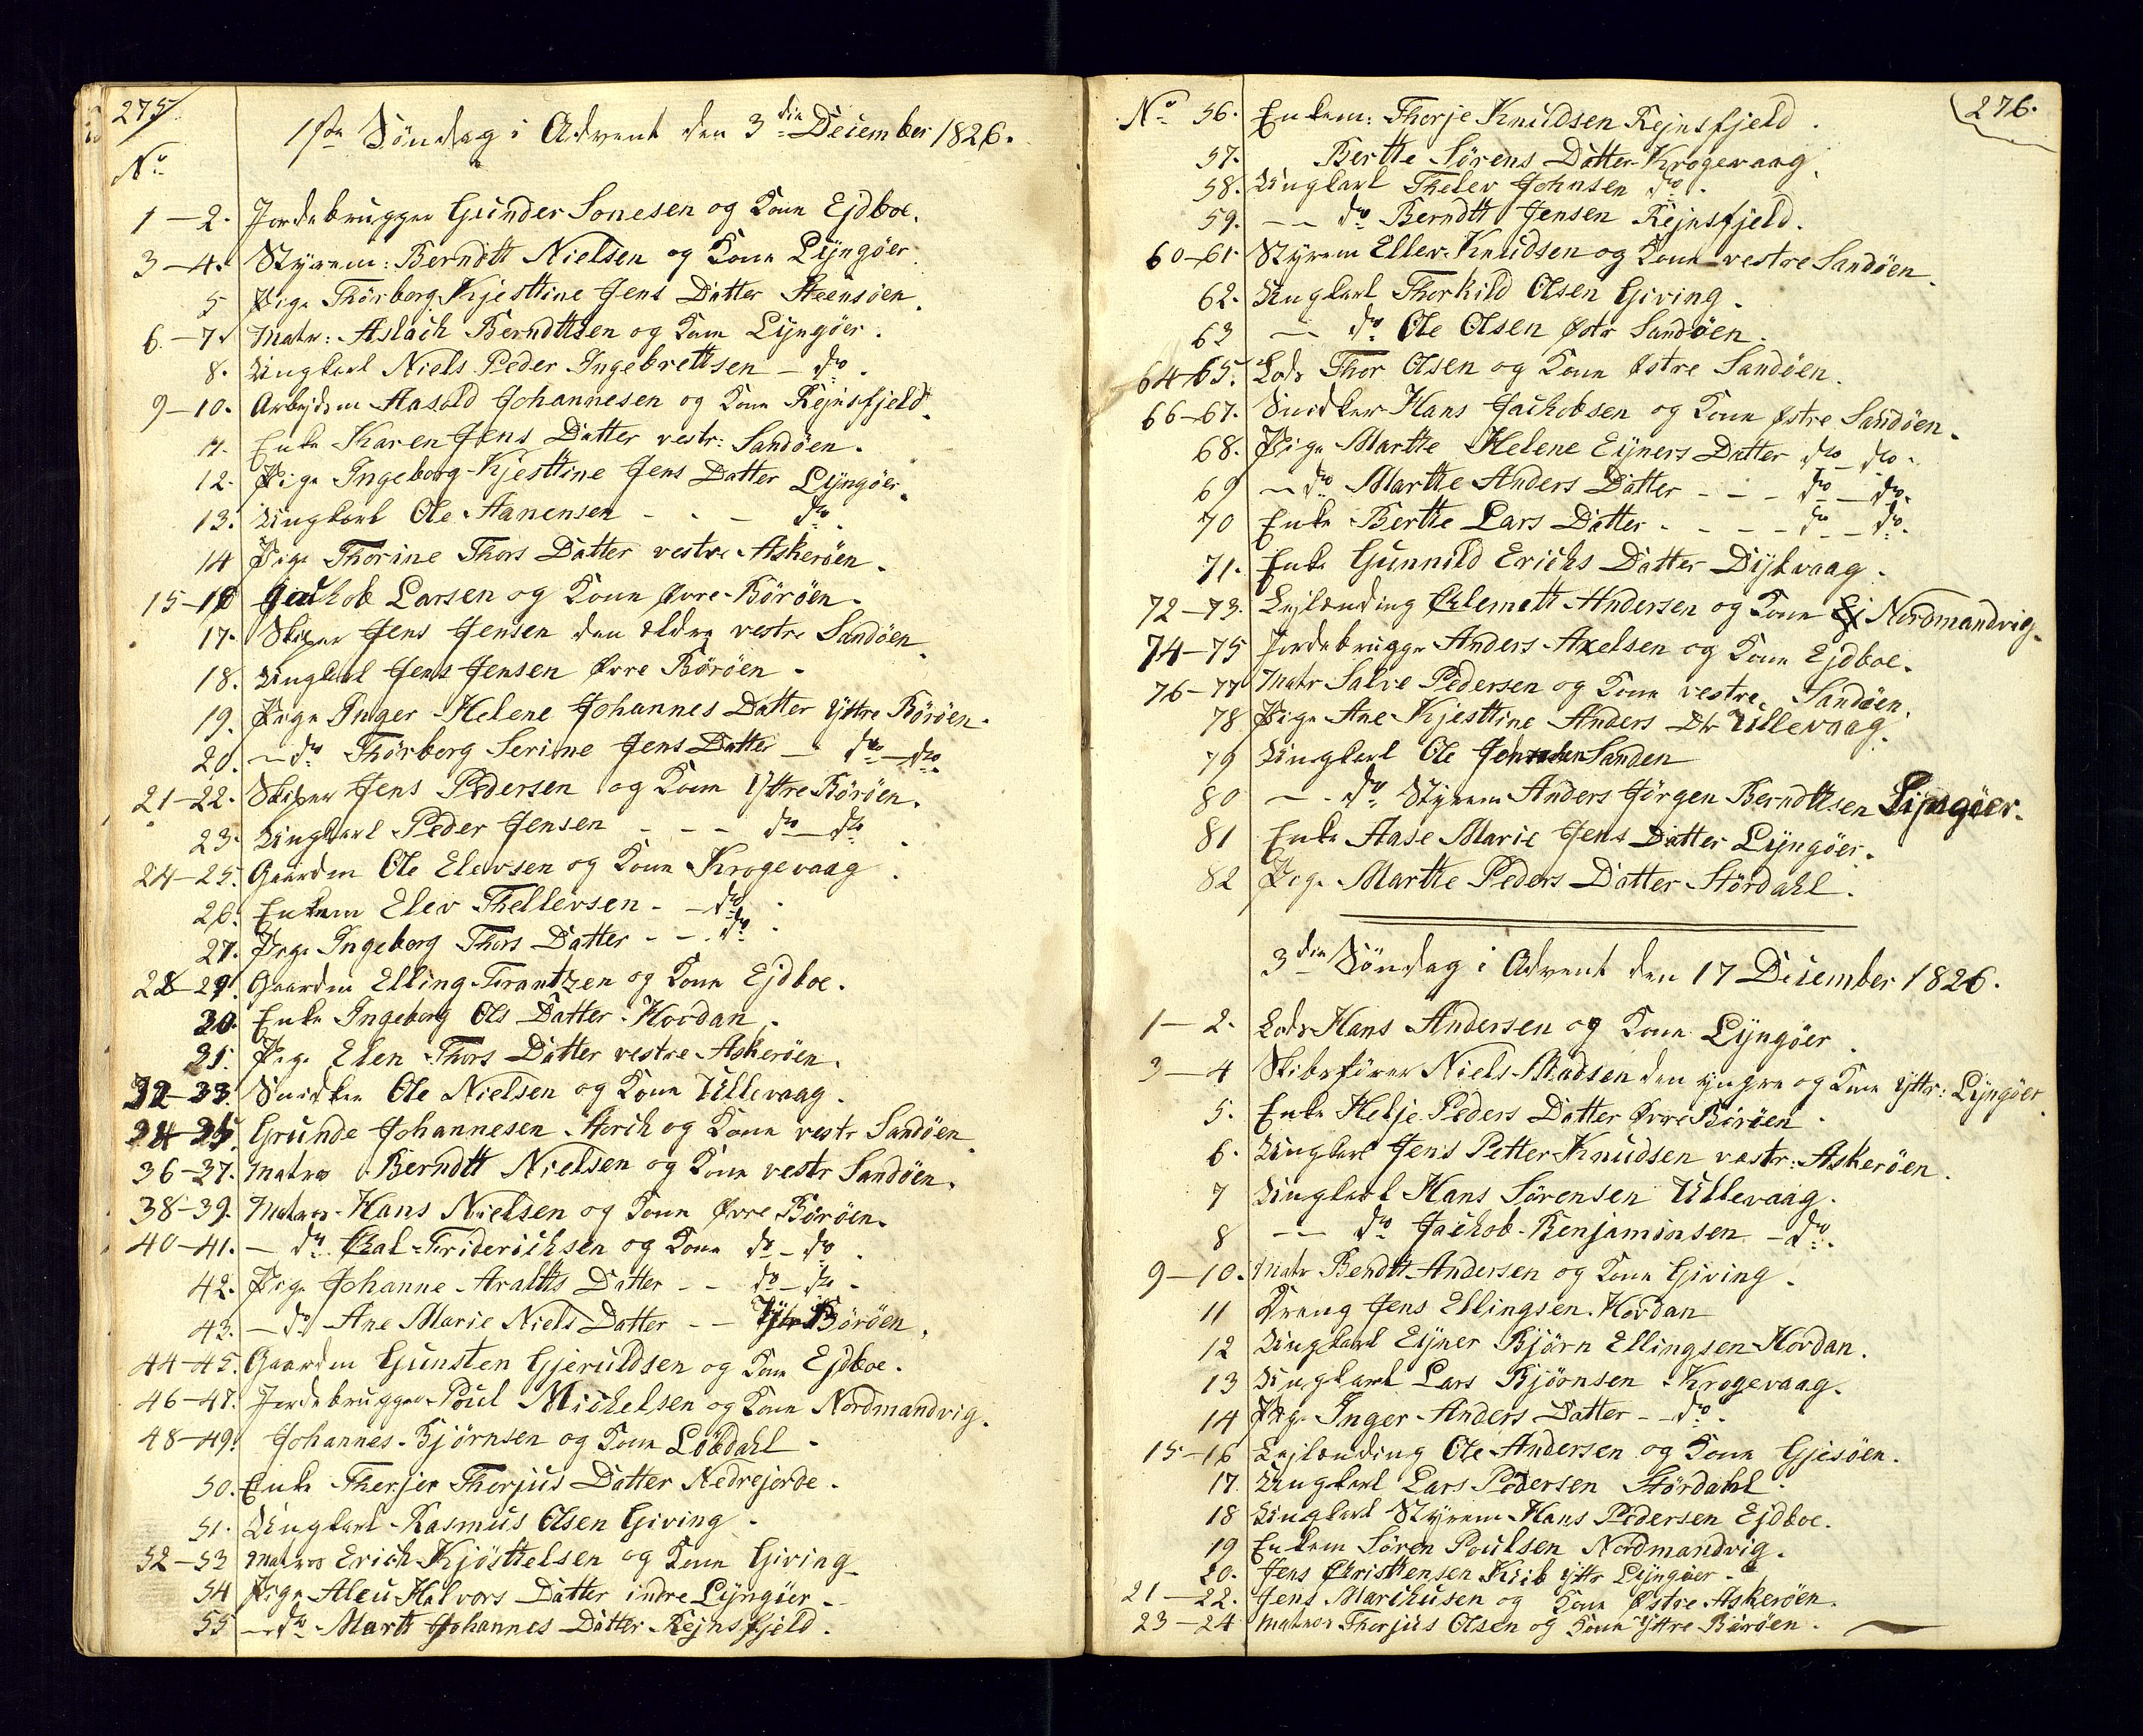 275
1ste Söndag i Advent den 3die December 1826.
No
1-2. Jordebrugger Gunder Sonesen og Kone Ejdboe.
3-4. Styrem: Berndtt Nielsen og Kone Lyngöer.
5 Pige Thörborg Kjesttine Jens Datter Steensöen.
6-7. Matr: Aslach Berndttsen og Kone Lyngöer.
8. Ungkarl Niels Peder Ingebrettsen - do.
9-10. Arbejdsm Aasold Johannesen og Kone Rejnsfjeld.
11. Enke Karen Jens Datter vestr: Sandöen.
12. Pige Ingeborg Kjesttine Jens Datter Lyngöer.
13. Ungkarl Ole Aanensen - - - do.
14 Pige Thorine Thors Datter vestre Askeröen.
15-16 Jachob Larsen og Kone Övre Böröen.
17. Skiper Jens Jensen den ældre vestre Sandöen.
18. Ungkarl Jens Jensen Övre Böröen -
19. Pige Inger Helene Johannes Datter Yttre Böröen.
20. - do Thörborg Serine Jens Datter - do - do.
21-22. Skiper Jens Pedersen og Kone Yttre Böröen.
23. Ungkarl Peder Jensen - - - do - do.
24-25. Gaardm Ole Elevsen og Kone Krogevaag.
26. Enkem Elev Thellevsen - - do.
27. Pige Ingeborg Thors Datter - - do.
28-29. Gaardm Elling Frantzen og Kone Ejdboe.
30. Enke Ingeborg Ols Datter Hovdan.
31. Pige Elen Thors Datter vestre Askeröen.
32-33. Snidker Ole Nielsen og Kone Ullevaag.
34-35 Grunde Johannesen Storch og Kone vestr Sandöen.
36-37. Matros Berndtt Nielsen og Kone vestr Sandöen.
38-39. Matros Hans Nielsen og Kone Övre Böröen.
40-41. - do Chal Friderichsen og Kone do - do.
42. Pige Johanne Aralds Datter - - do - do -
43. - do Ane Marie Niels Datter - - Ytr Böröen.
44-45. Gaardm Gunsten Gjeruldsen og Kone Ejdboe.
46-47. Jordebrugger Poul Michelsen og Kone Nordmandvig.
48-49. Johannes Bjørnsen og Kone Löbdahl -
50. Enke Therjer Thorjus Datter Nedrejorde.
51. Ungkarl Rasmus Olsen Giving -
52-53 Matros Erich Kjösttelsen og Kone Giving -
54 Pige Aleu Halvors Datter indre Lyngöer -
55 - do Marte Johannes Datter Rejnsfjeld.
276.
No 56. Enkem: Thorje Knudsen Rejnsfjeld.
57. Bertte Sörens Datter Krogevaag.
58. Ungkarl Thelev Johnsen do.
59. - - do Berndtt Jensen Rejnsfjeld.
60-61. Styrem Ellev Knudsen og Kone vestre Sandöen.
62. Ungkarl Thorkild Olsen Giving.
63 - do Ole Olsen Östr Sandöen.
64-65. Lods Thor Olsen og Kone Östre Sandöen.
66-67. Snidker Hans Jachobsen og Kone Østre Sandöen.
68. Pige Martte Helene Eyners Datter do - do.
69 - do Martte Anders Datter - - - do - do.
70 Enke Bertte Lars Datter - - - - do - do.
71. Enke Gunnild Erichs Datter Dybvaag.
72-73. Lejlænding Chlemett Andersen og Kone Nordmandvig.
74-75 Jordebrugger Anders Axelsen og Kone Ejdboe.
76-77 Matr Salve Pedersen og Kone vestre Sandöen.
78 Pige Ane Kjesttine Anders Dtr Ullevaag.
79 Ungkarl Ole Jensen Sanden
80 - - do Styrem Anders Jörgen Berndttsen Lyngöer.
81 Enke Aase Marie Jens Datter Lyngöer.
82 Pige Martte Peders Datter Stördahl.
3die Söndag i Advent den 17 December 1826.
1-2. Lods Hans Andersen og Kone Lyngöer.
3-4 Skibsförer Niels Madsen den yngre og Kone Yttr: Lyngöer.
5. Enke Helje Peders Datter Övre Böröen.
6. Ungkarl Jens Petter Knudsen vestr: Askeröen.
7 Ungkarl Hans Sörensen Ullevaag.
8 - - do Jachob Benjaminsen - do.
9-10. Matr Bendtt Andersen og Kone Giving.
11 Dreng Jens Ellingsen Hovdan
12 Ungkarl Eyner Björn Ellingsen Hovdan.
13 Ungkarl Lars Bjöonsen Krogevaag.
14 Pige Inger Anders Datter - - do.
15-16 Lejlænding Ole Andersen og Kone Gjesöen.
17. Ungkarl Lars Pedersen Stördahl.
18 Ungkarl Styrem Hans Pedersen Ejdboe.
19 Enkem Sören Poulsen Nordmandvig.
20. Jens Christtensen Krib Yttr Lyngöer -
21-22. Jens Marchusen og Kone Östre Askeröen.
23-24 Matros Thorjus Olsen og Kone Yttre Böröen.